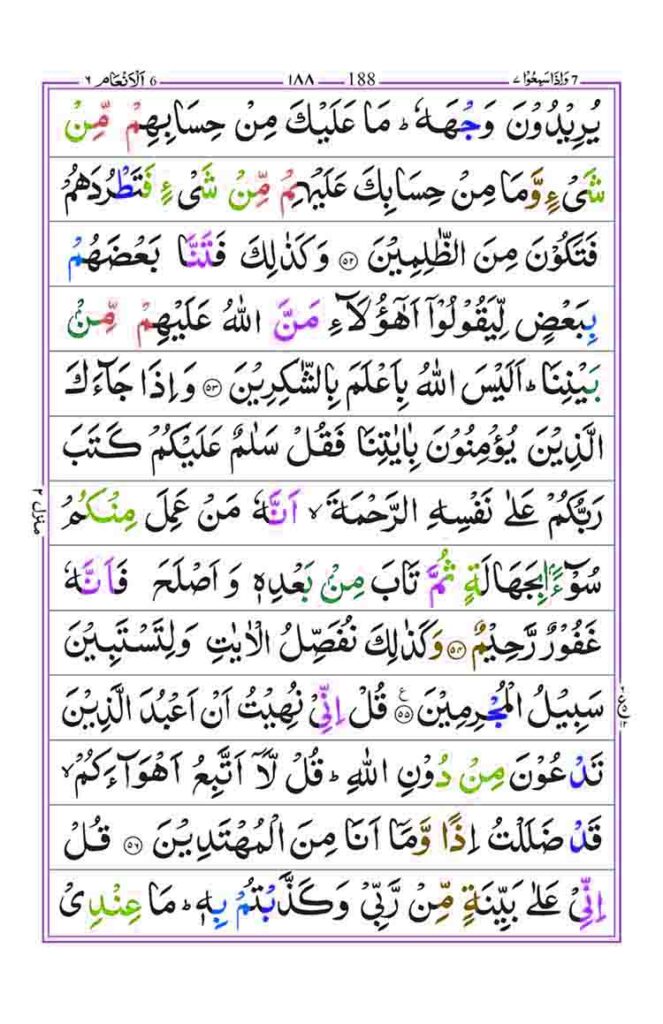 7 وَاِذَا سَمِعُوْا ٧ 188 ١٨٨ 6 اَلْاَنْعَام ٦
يُرِيْدُوْنَ وَجْهَهٗ ؕ مَا عَلَيْكَ مِنْ حِسَابِهِمْ مِّنْ
شَىْءٍ وَّمَا مِنْ حِسَابِكَ عَلَيْهِمْ مِّنْ شَىْءٍ فَتَطْرُدَهُمْ
فَتَكُوْنَ مِنَ الظّٰلِمِيْنَ ﴿۵۲﴾ وَكَذٰلِكَ فَتَنَّا بَعْضَهُمْ
بِبَعْضٍ لِّيَقُوْلُوْۤا اَهٰٓؤُلَآءِ مَنَّ اللّٰهُ عَلَيْهِمْ مِّنْۢ
بَيْنِنَا ؕ اَلَيْسَ اللّٰهُ بِاَعْلَمَ بِالشّٰكِرِيْنَ ﴿۵۳﴾ وَاِذَا جَآءَكَ
الَّذِيْنَ يُؤْمِنُوْنَ بِاٰيٰتِنَا فَقُلْ سَلٰمٌ عَلَيْكُمْ كَتَبَ
رَبُّكُمْ عَلٰى نَفْسِهِ الرَّحْمَةَ ۙ اَنَّهٗ مَنْ عَمِلَ مِنْكُمْ
سُوْٓءًۢا بِجَهَالَةٍ ثُمَّ تَابَ مِنْۢ بَعْدِهٖ وَاَصْلَحَ فَاَنَّهٗ
غَفُوْرٌ رَّحِيْمٌ ﴿۵۴﴾ وَكَذٰلِكَ نُفَصِّلُ الْاٰيٰتِ وَلِتَسْتَبِيْنَ
سَبِيْلُ الْمُجْرِمِيْنَ ﴿۵۵﴾ ع قُلْ اِنِّىْ نُهِيْتُ اَنْ اَعْبُدَ الَّذِيْنَ
تَدْعُوْنَ مِنْ دُوْنِ اللّٰهِ ؕ قُلْ لَّاۤ اَتَّبِعُ اَهْوَآءَكُمْ ۙ
قَدْ ضَلَلْتُ اِذًا وَّمَاۤ اَنَا مِنَ الْمُهْتَدِيْنَ ﴿۵۶﴾ قُلْ
اِنِّىْ عَلٰى بَيِّنَةٍ مِّنْ رَّبِّىْ وَكَذَّبْتُمْ بِهٖ ؕ مَا عِنْدِىْ
منزل ٢